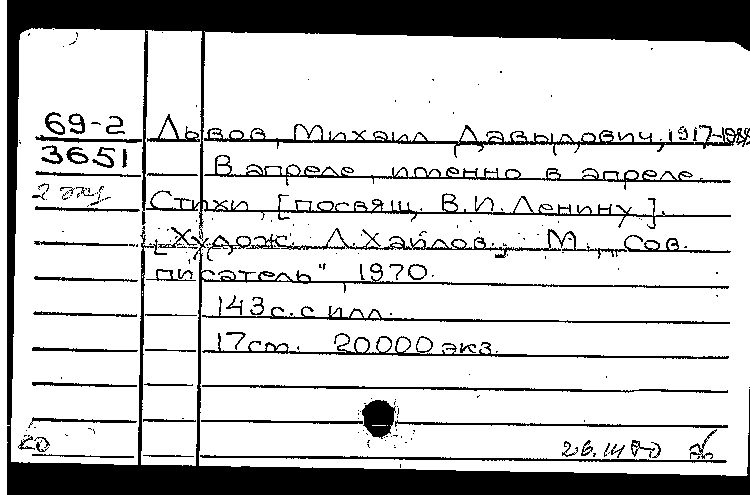 69-2 Львов, Михаил Давыдович, 1917-1988
3651 В апреле, именно в апреле.
2 экз Стихи, [посвящ. В.И.Ленину].
[Худож. Л.Хайлов]. М., „Сов.
писатель", 1970.
143 с. с илл.
17 см. 20000 экз.
26.III 70